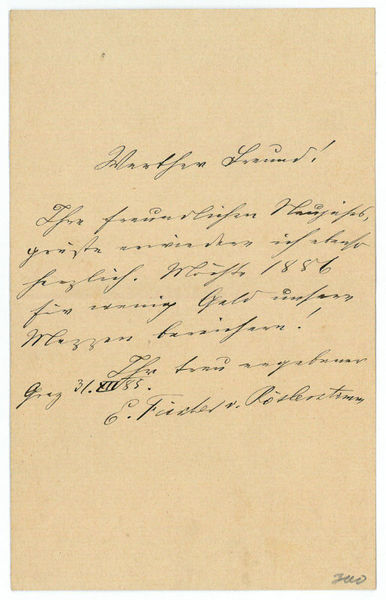 Werther Freund!
Ihre freundlichen Neujahrs-
grüße erwiedere ich ebenso
herzlich. Möchte 1886
für wenig Geld unsere
Mappen bereichern!
Ihr treu ergebener
Graz 31.XII 85.
E. Fischer v. Röslerstamm
300